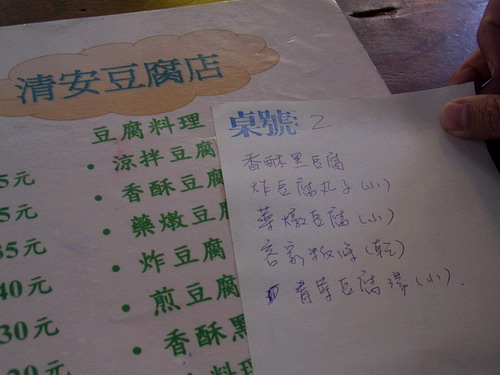 清安豆腐店
豆腐料理
• 涼拌豆腐
5元 • 香酥豆腐
5元 • 藥燉豆
35元 • 炸豆腐
40元 • 煎豆腐
30元 • 香酥黑
20元 料理
桌號: 2
香酥黑豆腐
炸豆腐丸子(小)
藥燉豆腐(小)
客家粄條(乾)
青草豆腐湯(小).